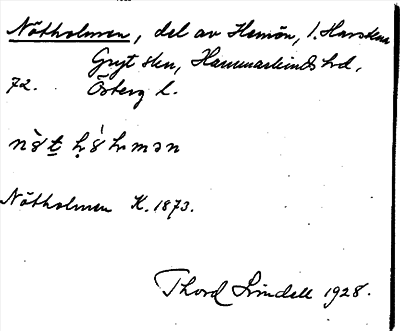 Nötholmen, del av Hemön, l. Harsken
Gryt skn, Hammarkinds hd,
72. Österg l.
Nötholmen K. 1873.
Thord Lindell 1928.